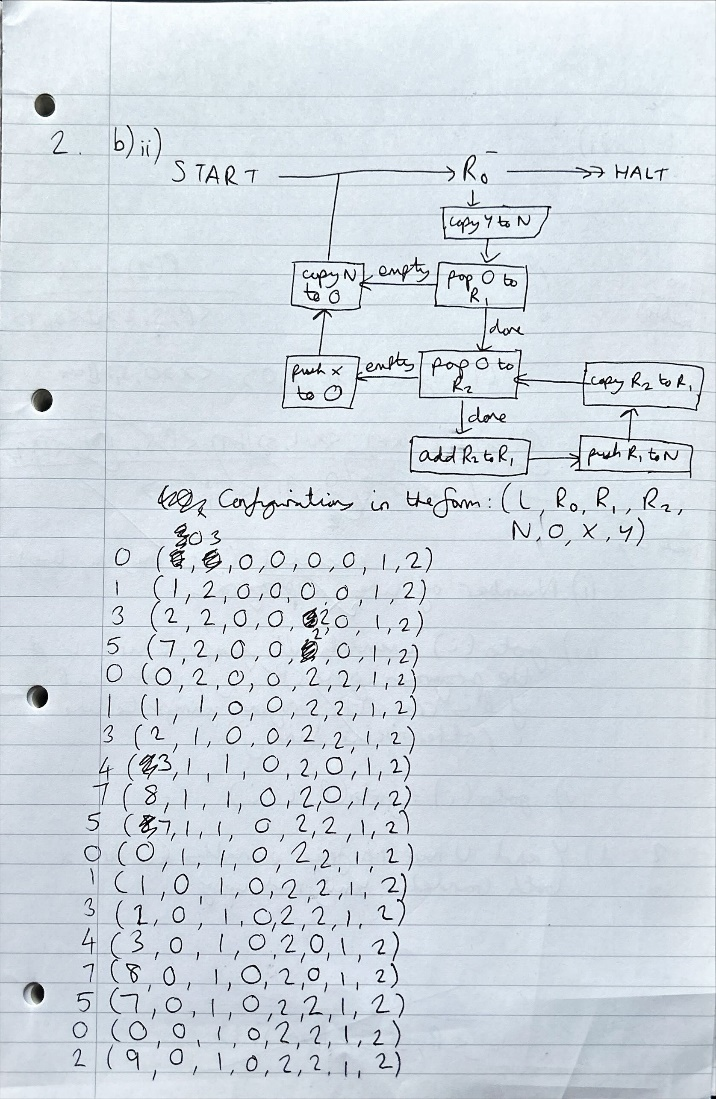 2. b) ii)
START → R₀⁻ →→ HALT
copy Y to N
copy N to O
empty
pop O to R₁
done
push x to O
empty
pop O to R₂
copy R₂ to R₁
done
add R₂ to R₁
push R₁ to N
Configurations in the form: (L, R₀, R₁, R₂,
N, O, X, Y)
0 (0, 3, 0, 0, 0, 0, 1, 2)
1 (1, 2, 0, 0, 0, 0, 1, 2)
3 (2, 2, 0, 0, 2, 0, 1, 2)
5 (7, 2, 0, 0, 2, 0, 1, 2)
0 (0, 2, 0, 0, 2, 2, 1, 2)
1 (1, 1, 0, 0, 2, 2, 1, 2)
3 (2, 1, 0, 0, 2, 2, 1, 2)
4 (3, 1, 1, 0, 2, 0, 1, 2)
7 (8, 1, 1, 0, 2, 0, 1, 2)
5 (7, 1, 1, 0, 2, 2, 1, 2)
0 (0, 1, 1, 0, 2, 2, 1, 2)
1 (1, 0, 1, 0, 2, 2, 1, 2)
3 (2, 0, 1, 0, 2, 2, 1, 2)
4 (3, 0, 1, 0, 2, 0, 1, 2)
7 (8, 0, 1, 0, 2, 0, 1, 2)
5 (7, 0, 1, 0, 2, 2, 1, 2)
0 (0, 0, 1, 0, 2, 2, 1, 2)
2 (9, 0, 1, 0, 2, 2, 1, 2)